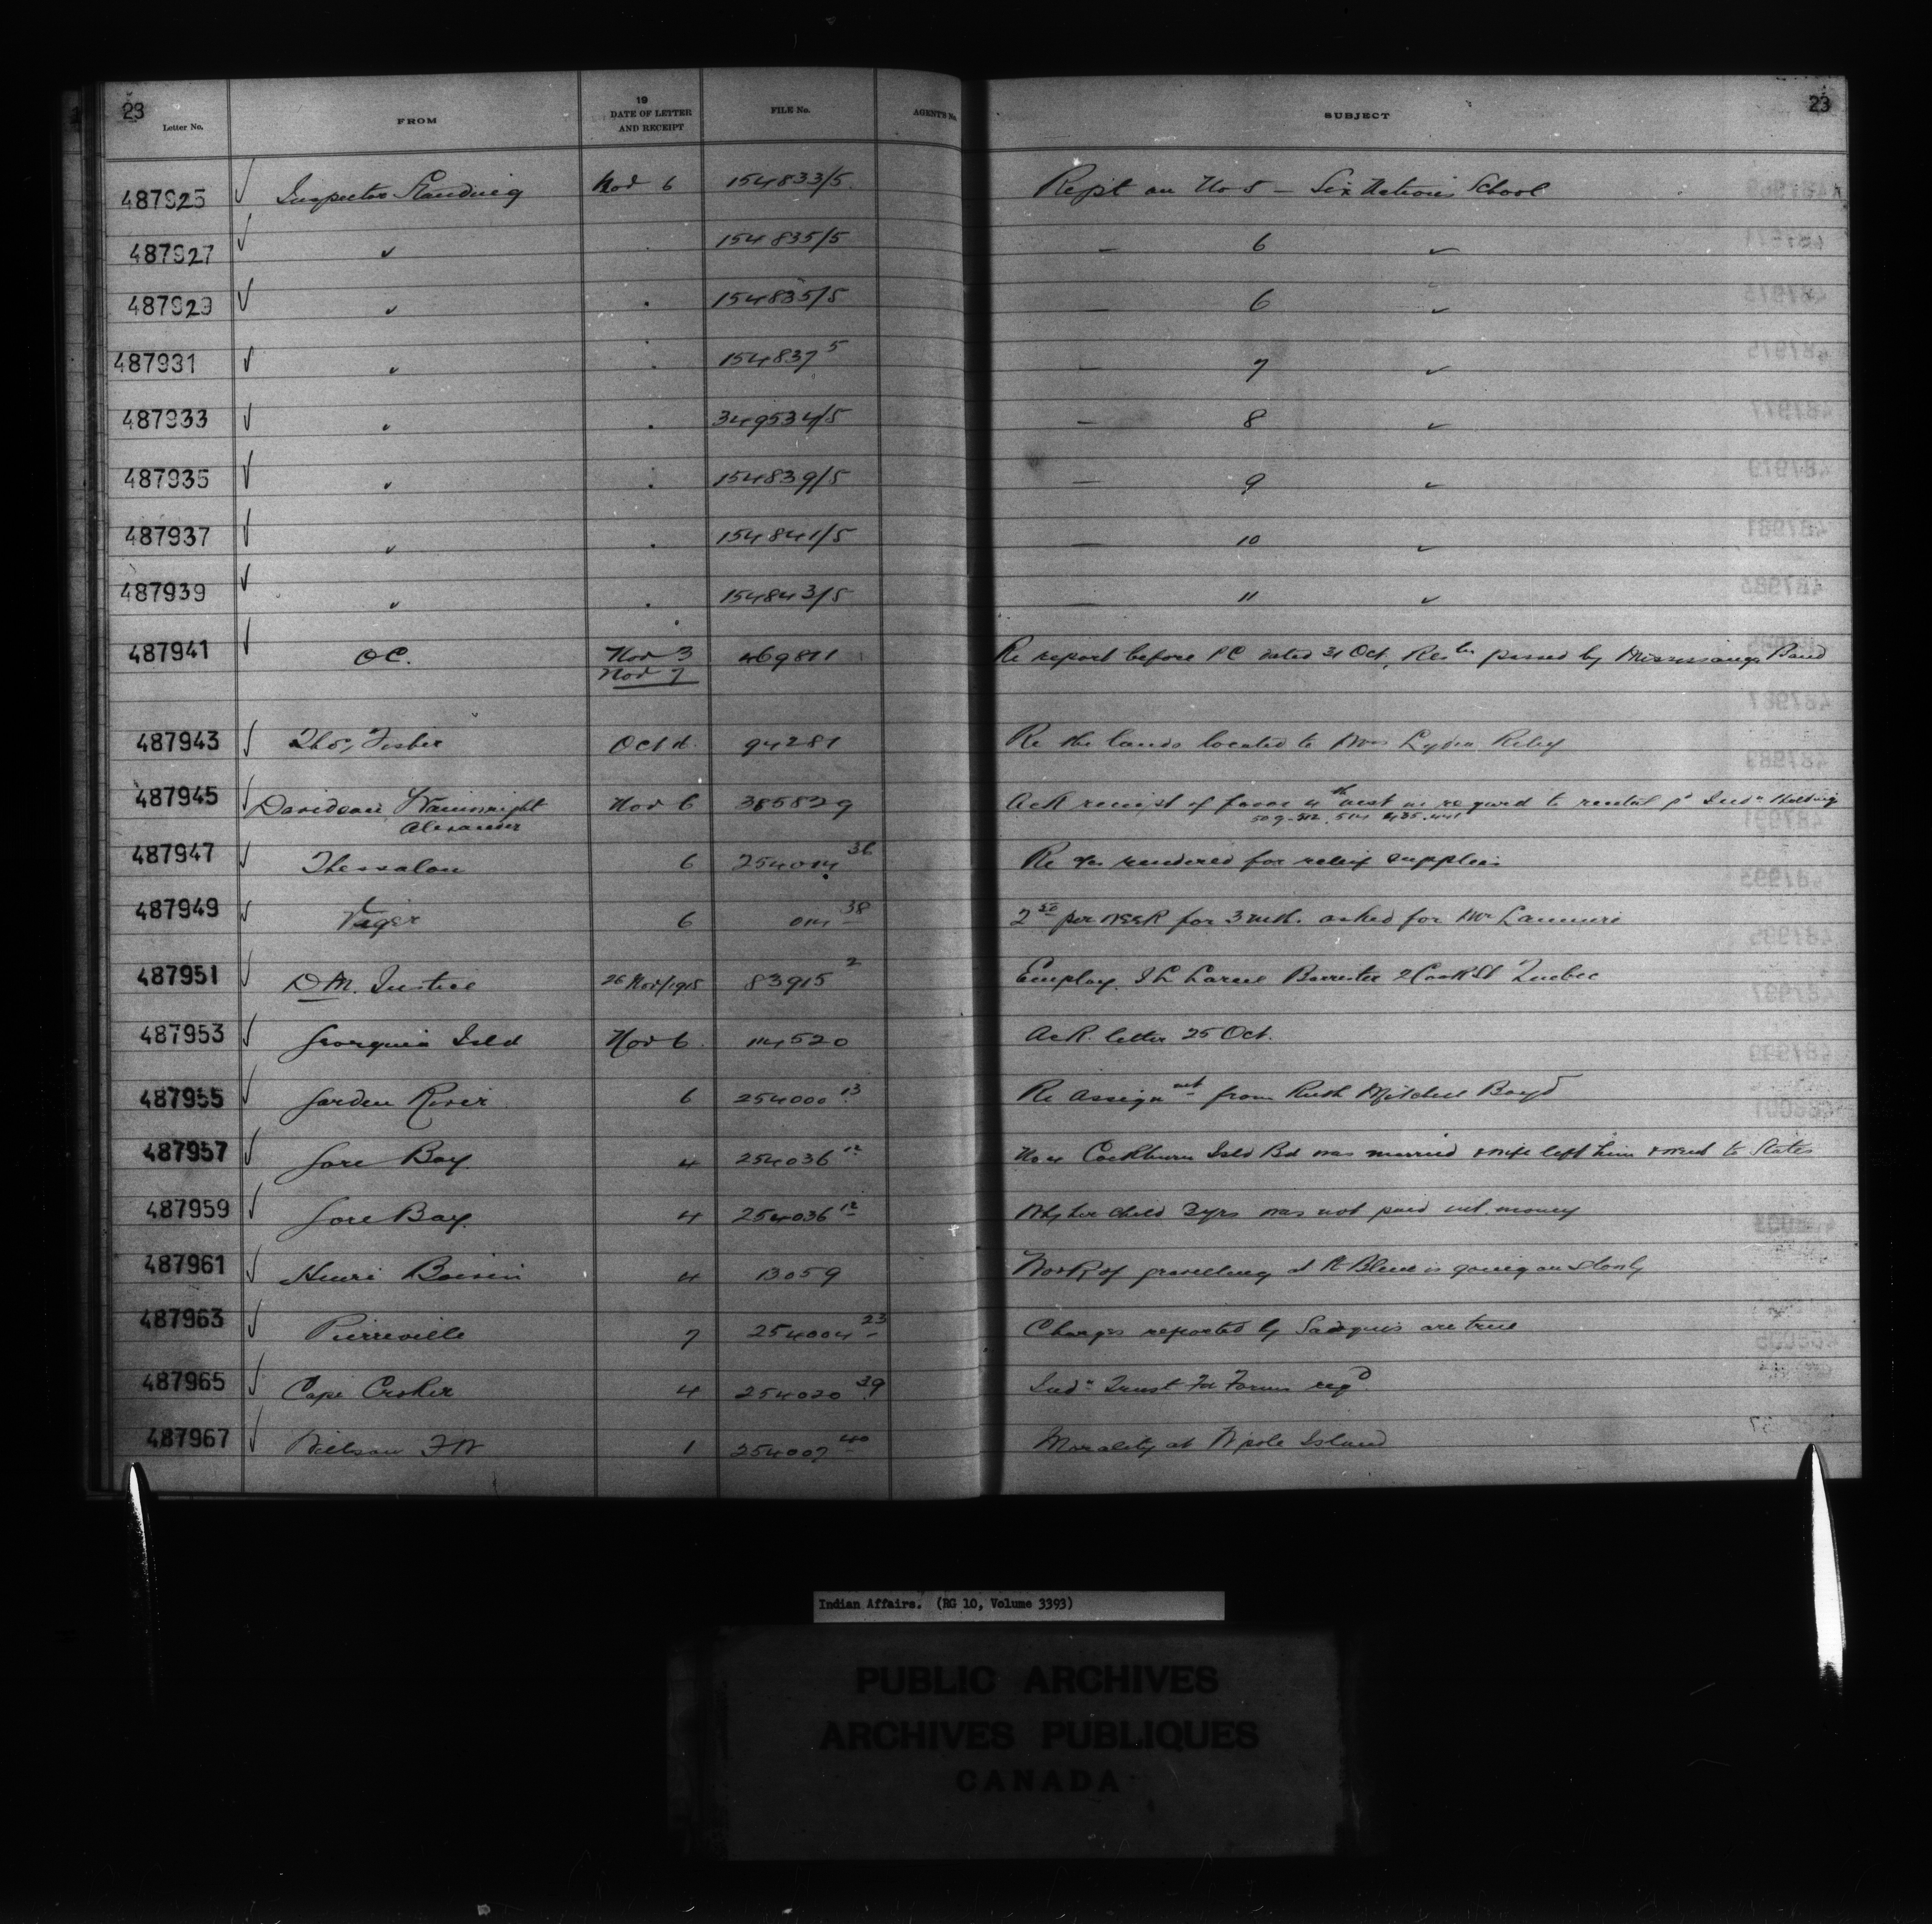 23
Letter No. FROM 19 DATE OF LETTER AND RECEIPT FILE No. AGENT'S No. SUBJECT 23
487925 Inspector Standing Nov 6 154833/5 Rept on No 5 — Six Nations School
487927 " 154835/5 — 6 "
487929 " " 154835/5 — 6 "
487931 " " 154837 5 — 7 "
487933 " " 349534/5 — 8 "
487935 " " 154839/5 — 9 "
487937 " " 154841/5 — 10 "
487939 " " 154843/5 — 11 "
487941 OC. Nov 3 469811 Re report before PC dated 31 Oct, Resln passed by Mississauga Band
Nov 7
487943 Thos, Fisher Oct 94281 Re the lands located to Mrs Lydia Riley
487945 Davidson, Wainwright Nov 6 385829 Ack receipt of favor 4th inst in regard to rental Indn Holding
Alexander 509-512. 514
487947 Thessalon 6 254014 36 Re a/cs rendered for relief supplies
487949 Viger 6 014 38 2 50 per week for 3 mth. asked for Mr
487951 D M. Justice 26 Nov/1915 83915 2 Employ. Larue Barrister 2 Cook St Quebec
487953 Georgina Isld Nov 6. 114520 Ack. letter 25 Oct.
487955 Garden River 6 254000 13 Re Assignmt from Ruth Mitchell Boyd
487957 Gore Bay 4 254036 12 No 4 Cockburn Isld Bd was married & wife left him & went to States
487959 Gore Bay. 4 254036 12 Why her child 3yrs was not paid int. money
487961 Henri Boivin 4 13059 Work of gravelling at Pt Bleue is going on slowly
487963 Pierreville 7 254004 23 Charges reported by are true
487965 Cape Croker 4 254020 39 Indn Trust Fd Forms reqd
487967 Wilson F W 1 254007 40 Morality at Wpole Island
Indian Affairs. (RG 10, Volume 3393)
PUBLIC ARCHIVES
ARCHIVES PUBLIQUES
CANADA